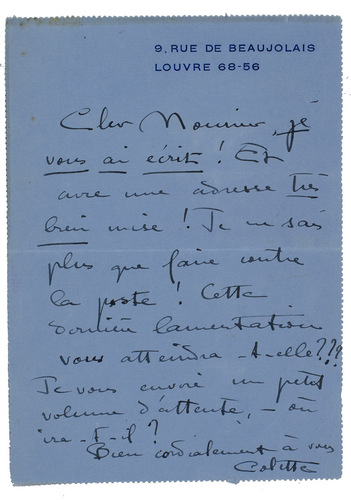 9, RUE DE BEAUJOLAIS
LOUVRE 68-56
Cher Monsieur, je
vous ai écrit ! Et
avec une adresse très
bien mise ! Je ne sais
plus que faire contre
la poste ! Cette
dernière lamentation
vous atteindra-t-elle???
Je vous envoie un petit
volume d'attente, - où
ira-t-il ?
Bien cordialement à vous
Colette